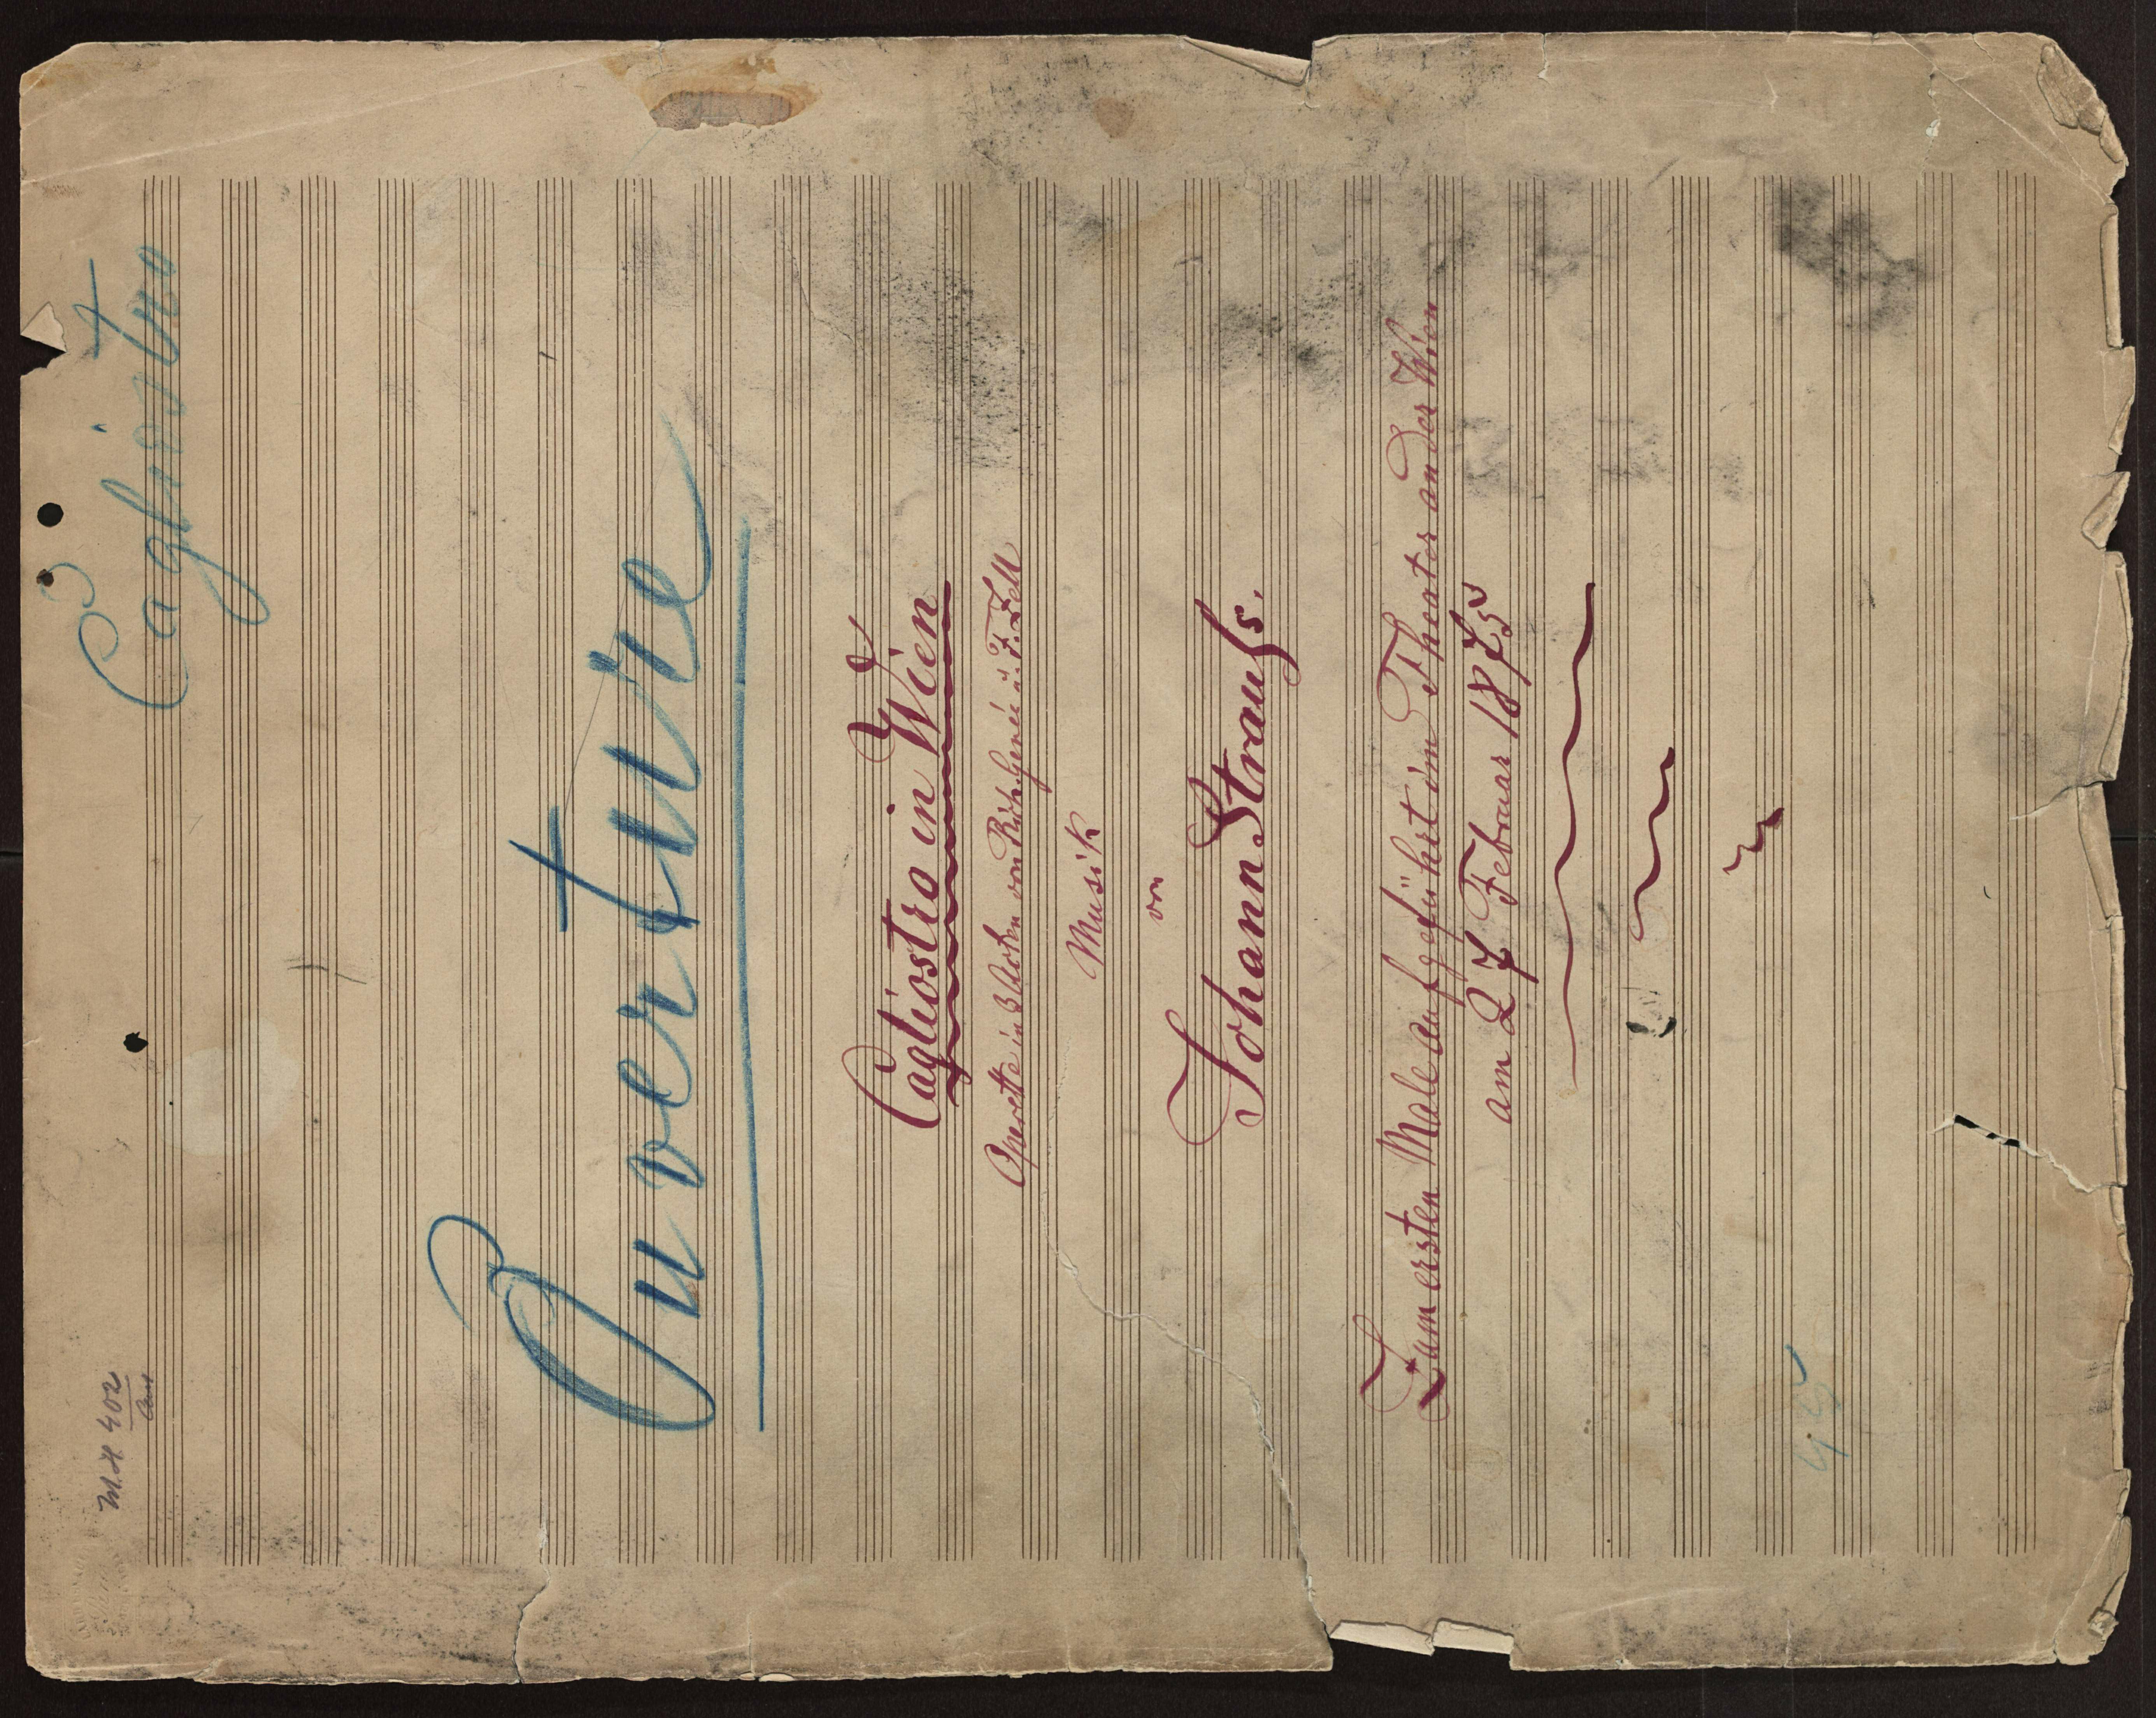 M.H. 402
Cagliostro
Ouverture
Cagliostro in Wien
Operette in 3 Akten von Rich. Genée u. F. Zell
Musik
von
Johann Strauß.
Zum ersten Male aufgeführt im Theater an der Wien
am 27 Februar 1875